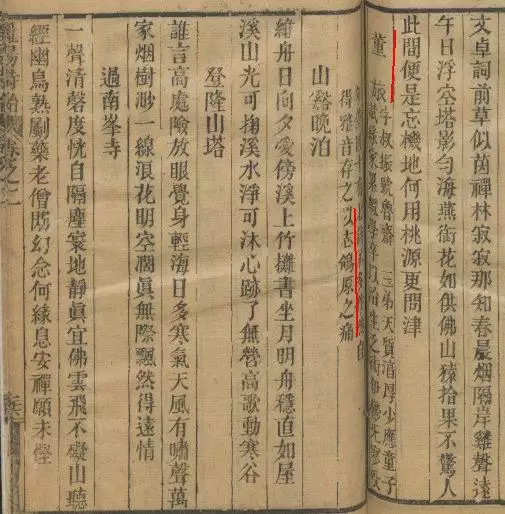 文卓詞前草似茵禪林寂寂那知春晨烟隔岸雞聲遠
午日浮空塔影勻海燕銜花如供佛山猿拾果不驚人
此間便是忘機地何用桃源更問津
董旅 字叔振號魯齋 三弟天質渟厚少應童子
得雅音存之以志鴒原之痛
山谿晚泊
維舟日向夕愛傍溪上竹攤書坐月明舟穩直如屋
溪山光可掬溪水淨可沐心跡了無營高歌動寒谷
登隆山塔
誰言高處險放眼覺身輕海日多寒氣天風有嘯聲萬
家烟樹渺一線浪花明空濶眞無際飄然得遠情
過南峯寺
一聲清磬度恍自隔塵寰地靜眞宜佛雲飛不礙山聽
經幽鳥熟劚藥老僧閒幻念何緣息安禪願未慳
卷之二